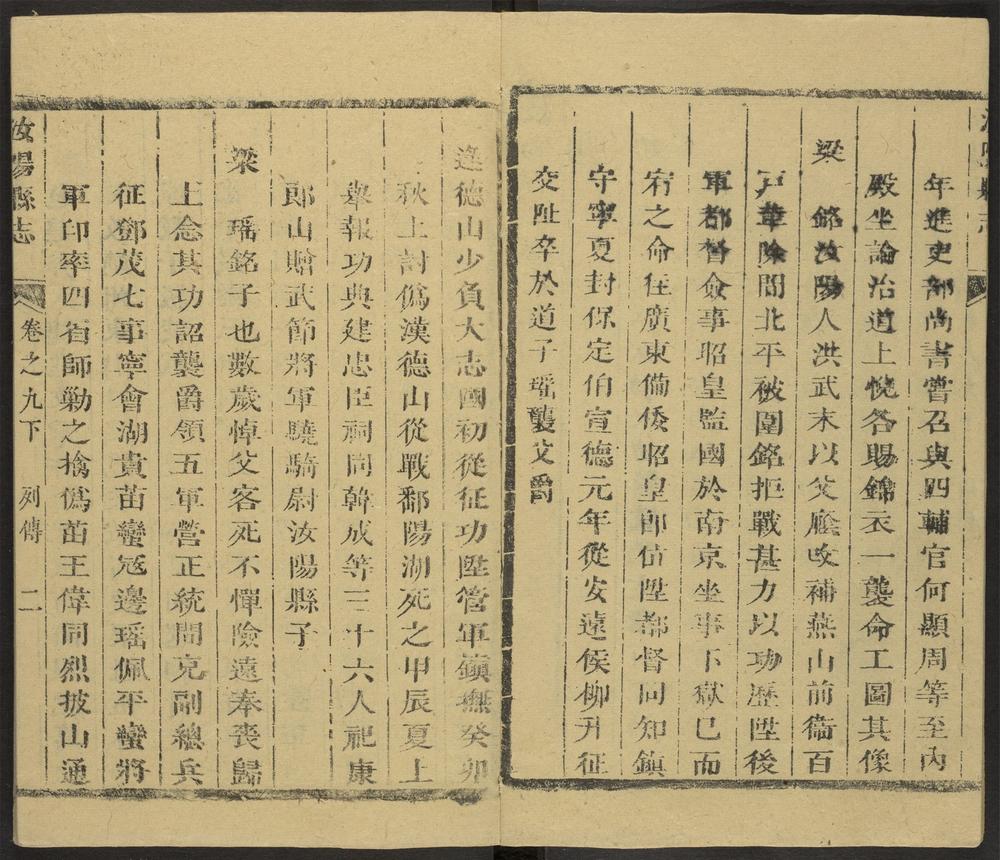 年進吏部尚書嘗召與四輔官何顯周等至內
殿坐論治道上悅各賜錦衣一襲命工圖其像
梁　銘汝陽人洪武末以父廕改補燕山前衞百
戸華除間北平被圍銘拒戰甚力以功歷陞後
軍都督僉事昭皇監國於南京坐事下獄已而
宥之命往廣東備倭昭皇卽位陞都督同知鎮
守寧夏封保定伯宣德元年從安遠侯柳升征
交阯卒於道子瑶襲父爵
逯德山少負大志國初從征功陞管軍鎮撫癸卯
秋上討僞漢德山從戰鄱陽湖死之甲辰夏上
舉報功典建忠臣祠同韓成等三十六人祀康
郎山贈武節將軍驍騎尉汝陽縣子
梁　瑶銘子也數歲悼父客死不憚險遠奉喪歸
上念其功詔襲爵領五軍營正統間充副總兵
征鄧茂七事寧會湖貴苗蠻冦邊瑶佩平蠻將
軍印率四省師勦之擒僞苗王偉同烈披山通
汝陽縣志
卷之九下　列傳　二